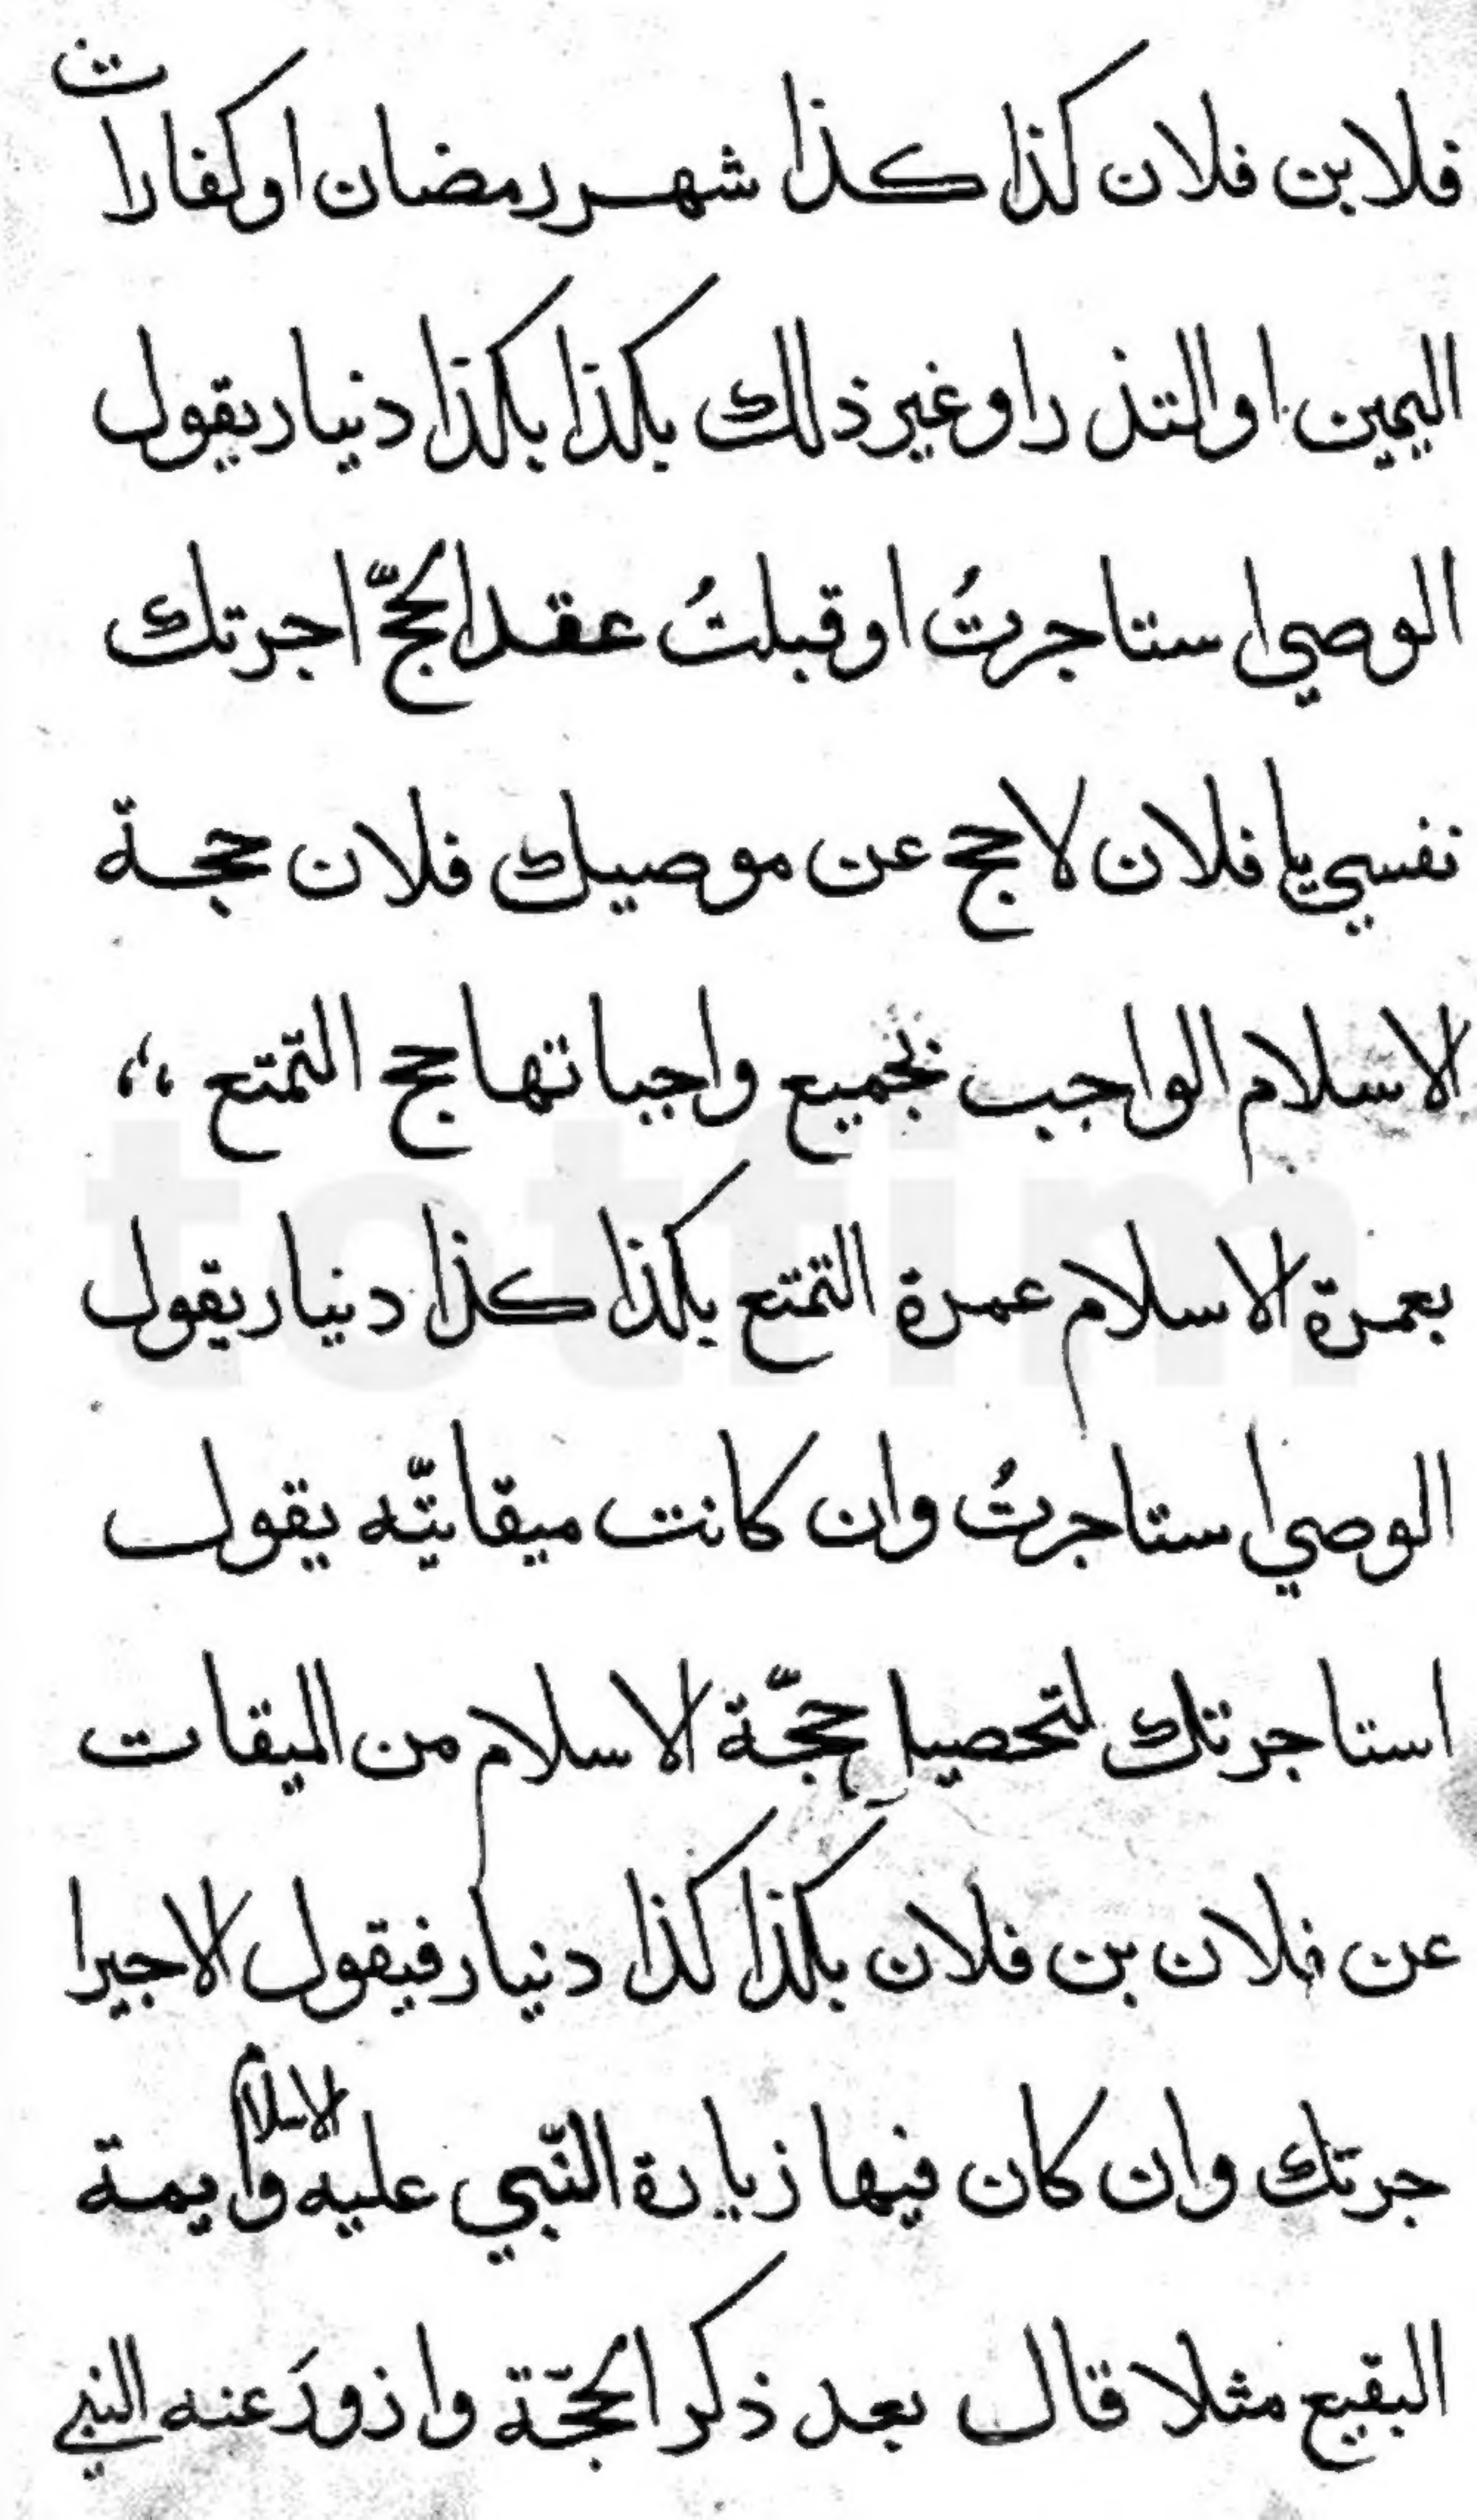 فلابن فلان كذا كذا شهر رمضان او كفارات
اليمين او التذر او غير ذلك بكذا بكذا دنيار يقول
الوصي استاجرتُ او قبلتُ عقد الحجّ اجرتك
نفسي يا فلان لاحج عن موصيك فلان حجة
الاسلام الواجب بجميع واجباتها حج التمتع
بعمرة الاسلام عمرة التمتع بكذا كذا دنيار يقول
الوصي استاجرتُ وان كانت ميقاتيّه يقول
استاجرتك لتحصيل حجّة الاسلام من الميقات
عن فلان بن فلان بكذا كذا دنيار فيقول الاجير ا
جرتك وان كان فيها زيارة النّبي عليه الاسلام وايمة
البقيع مثلا قال بعد ذكر الحجّة وازورَ عنه النبي
totfim